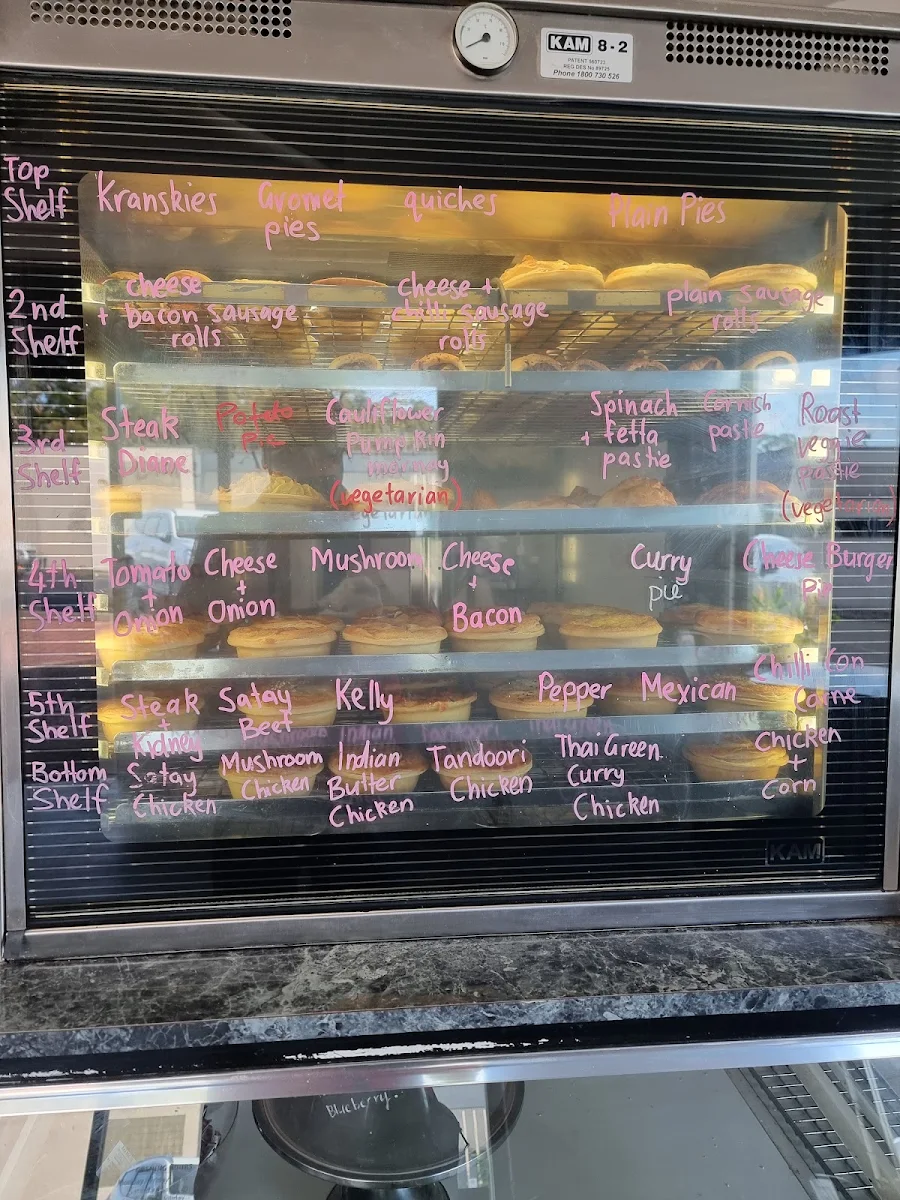 KAM 8-2
PATENT 569723
REG DES No 89721
Phone 1800 730 526
Top Shelf
Kranskies
Gromet pies
quiches
Plain Pies
2nd Shelf
cheese
+ bacon sausage
rolls
cheese +
chilli sausage
rolls
plain sausage
rolls
3rd Shelf
Steak
Diane
Potato
Pie
Cauliflower
Pumpkin
mornay
(vegetarian)
Spinach
+ fetta
pastie
Cornish
pastie
Roast
veggie
pastie
(vegetarian)
4th Shelf
Tomato
+
Onion
Cheese
+
Onion
Mushroom
Cheese
+
Bacon
Curry
pie
Cheese Burger
Pie
5th Shelf
Steak
+
Kidney
Satay
Beef
Kelly
Pepper
Mexican
Chilli Con
Carne
Bottom Shelf
Satay
Chicken
Mushroom
Chicken
Indian
Butter
Chicken
Tandoori
Chicken
Thai Green
Curry
Chicken
Chicken
+
Corn
KAM
Blueberry.